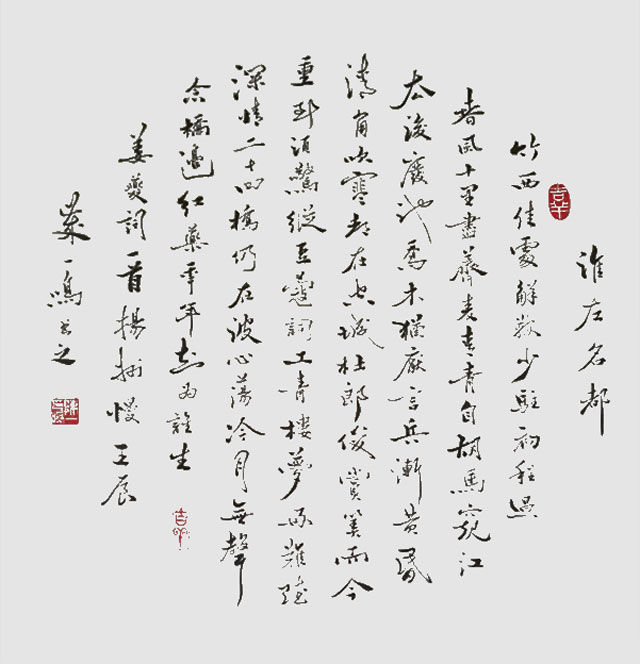 淮左名都
竹西佳處解鞍少駐初程過
春風十里盡薺麥青青自胡馬窺江
去後廢池喬木猶厭言兵漸黃昏
清角吹寒都在空城杜郎俊賞算而今
重到須驚縱豆蔻詞工青樓夢好難賦
深情二十四橋仍在波心蕩冷月無聲
念橋邊紅藥年年知為誰生
姜夔詞一首揚州慢壬辰
一鳴書之